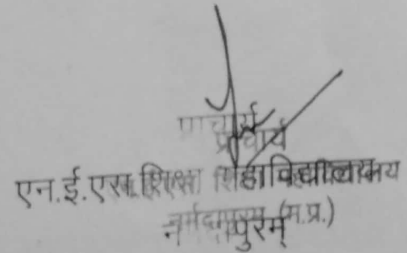 प्राचार्य
एन.ई.एस. शिक्षा महाविद्यालय
नर्मदापुरम् (म.प्र.)